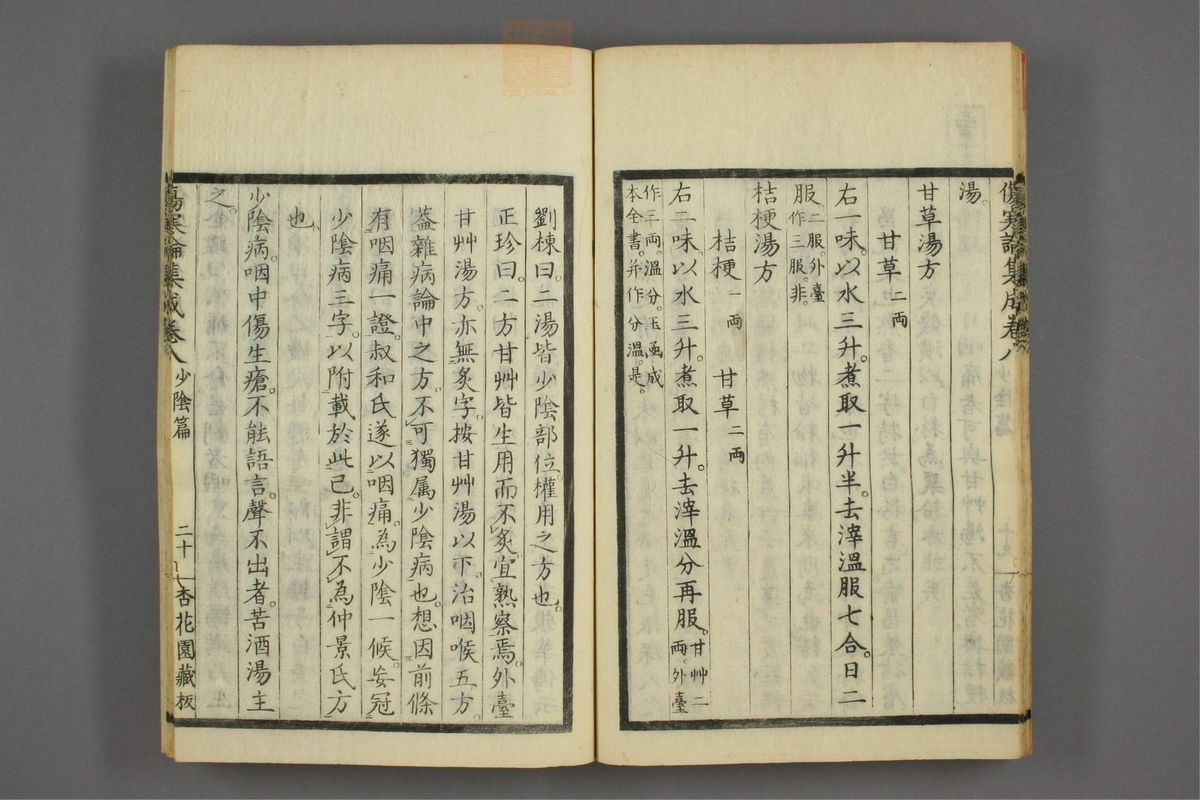 湯。
甘草湯方
甘草二兩
右一味。以水三升。煮取一升半。去滓溫服七合日二
服。二服外臺作三服。非。
桔梗湯方
桔梗一兩　甘草二兩
右二味。以水三升。煮取一升。去滓溫分再服。甘艸二兩。外臺
作三兩。溫分。玉函成本全書。并作分溫。是。
劉棟曰。二湯皆少陰部位。權用之方也。
正珍曰。二方甘艸皆生用而不炙。宜熟察焉。外臺
甘艸湯方。亦無炙字。按甘艸湯以下。治咽喉五方。
蓋雜病論中之方。不可獨属少陰病也。想因前條
有咽痛一證。叔和氏遂以咽痛。為少陰一候。妄冠
少陰病三字。以附載於此已。非謂不為仲景氏方
也。
少陰病。咽中傷生瘡。不能語言。聲不出者。苦酒湯主
之。
傷寒論集成卷八　少陰篇　二十　杏花園藏板